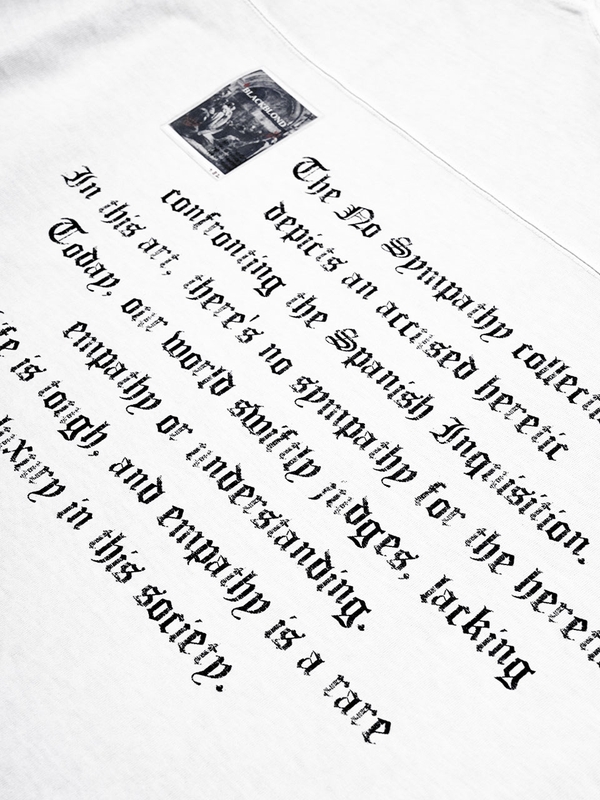 BLACKBLOND
The No Sympathy collecti
depicts an accused heretic
confronting the Spanish Inquisition.
In this art, there's no sympathy for the hereti
Today, our world swiftly judges, lacking
empathy or understanding.
ife is tough, and empathy is a rare
luxury in this society.